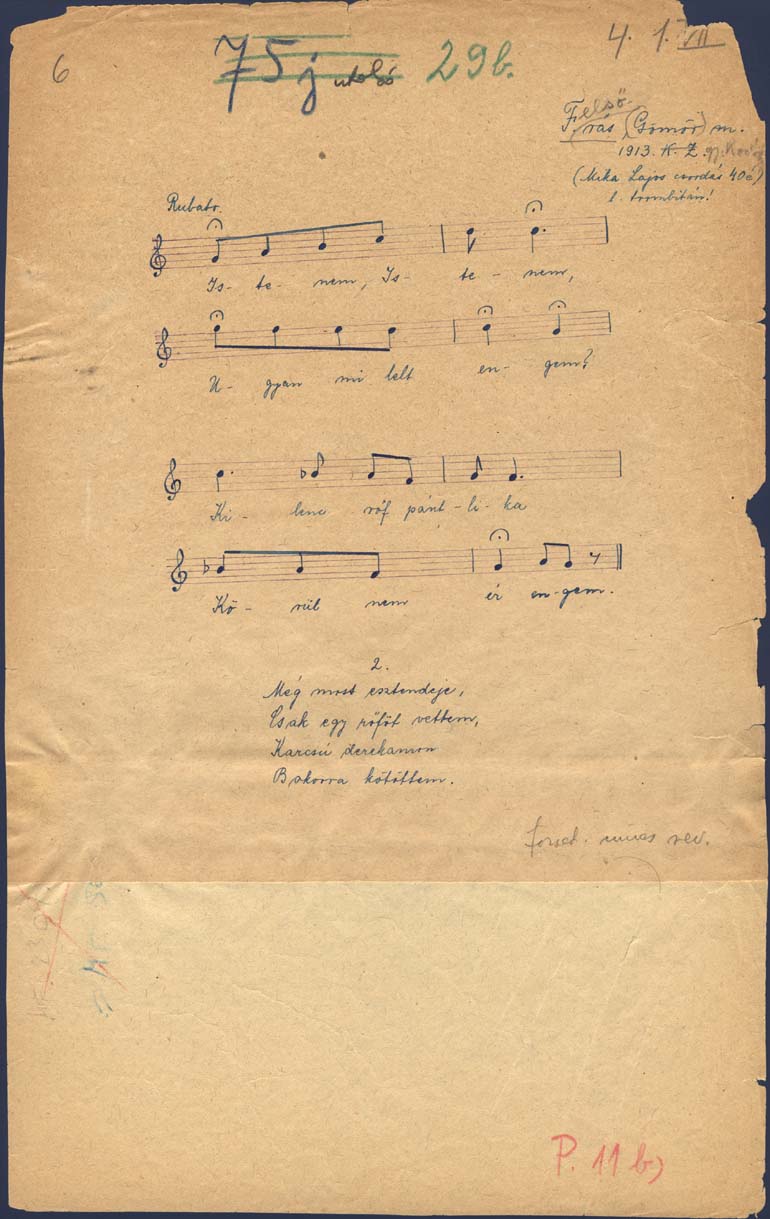 6
75j utolsó 29b.
4. 1. VII
Felső
F. rás (Gömör) m.
1913. K. Z. gy.
(Mika Lajos csordás 40é)
l. trombitán!
Rubato.
Is- te- nem, Is- te- nem,
U- gyan mi lelt en- gem?
Ki- lenc röf pánt-li- ka
Kö- rül nem ér en-gem.
2.
Még most esztendeje,
Csak egy röföt vettem,
Karcsú derekamon
Bokorra kötöttem.
nincs rev.
P. 11 b)